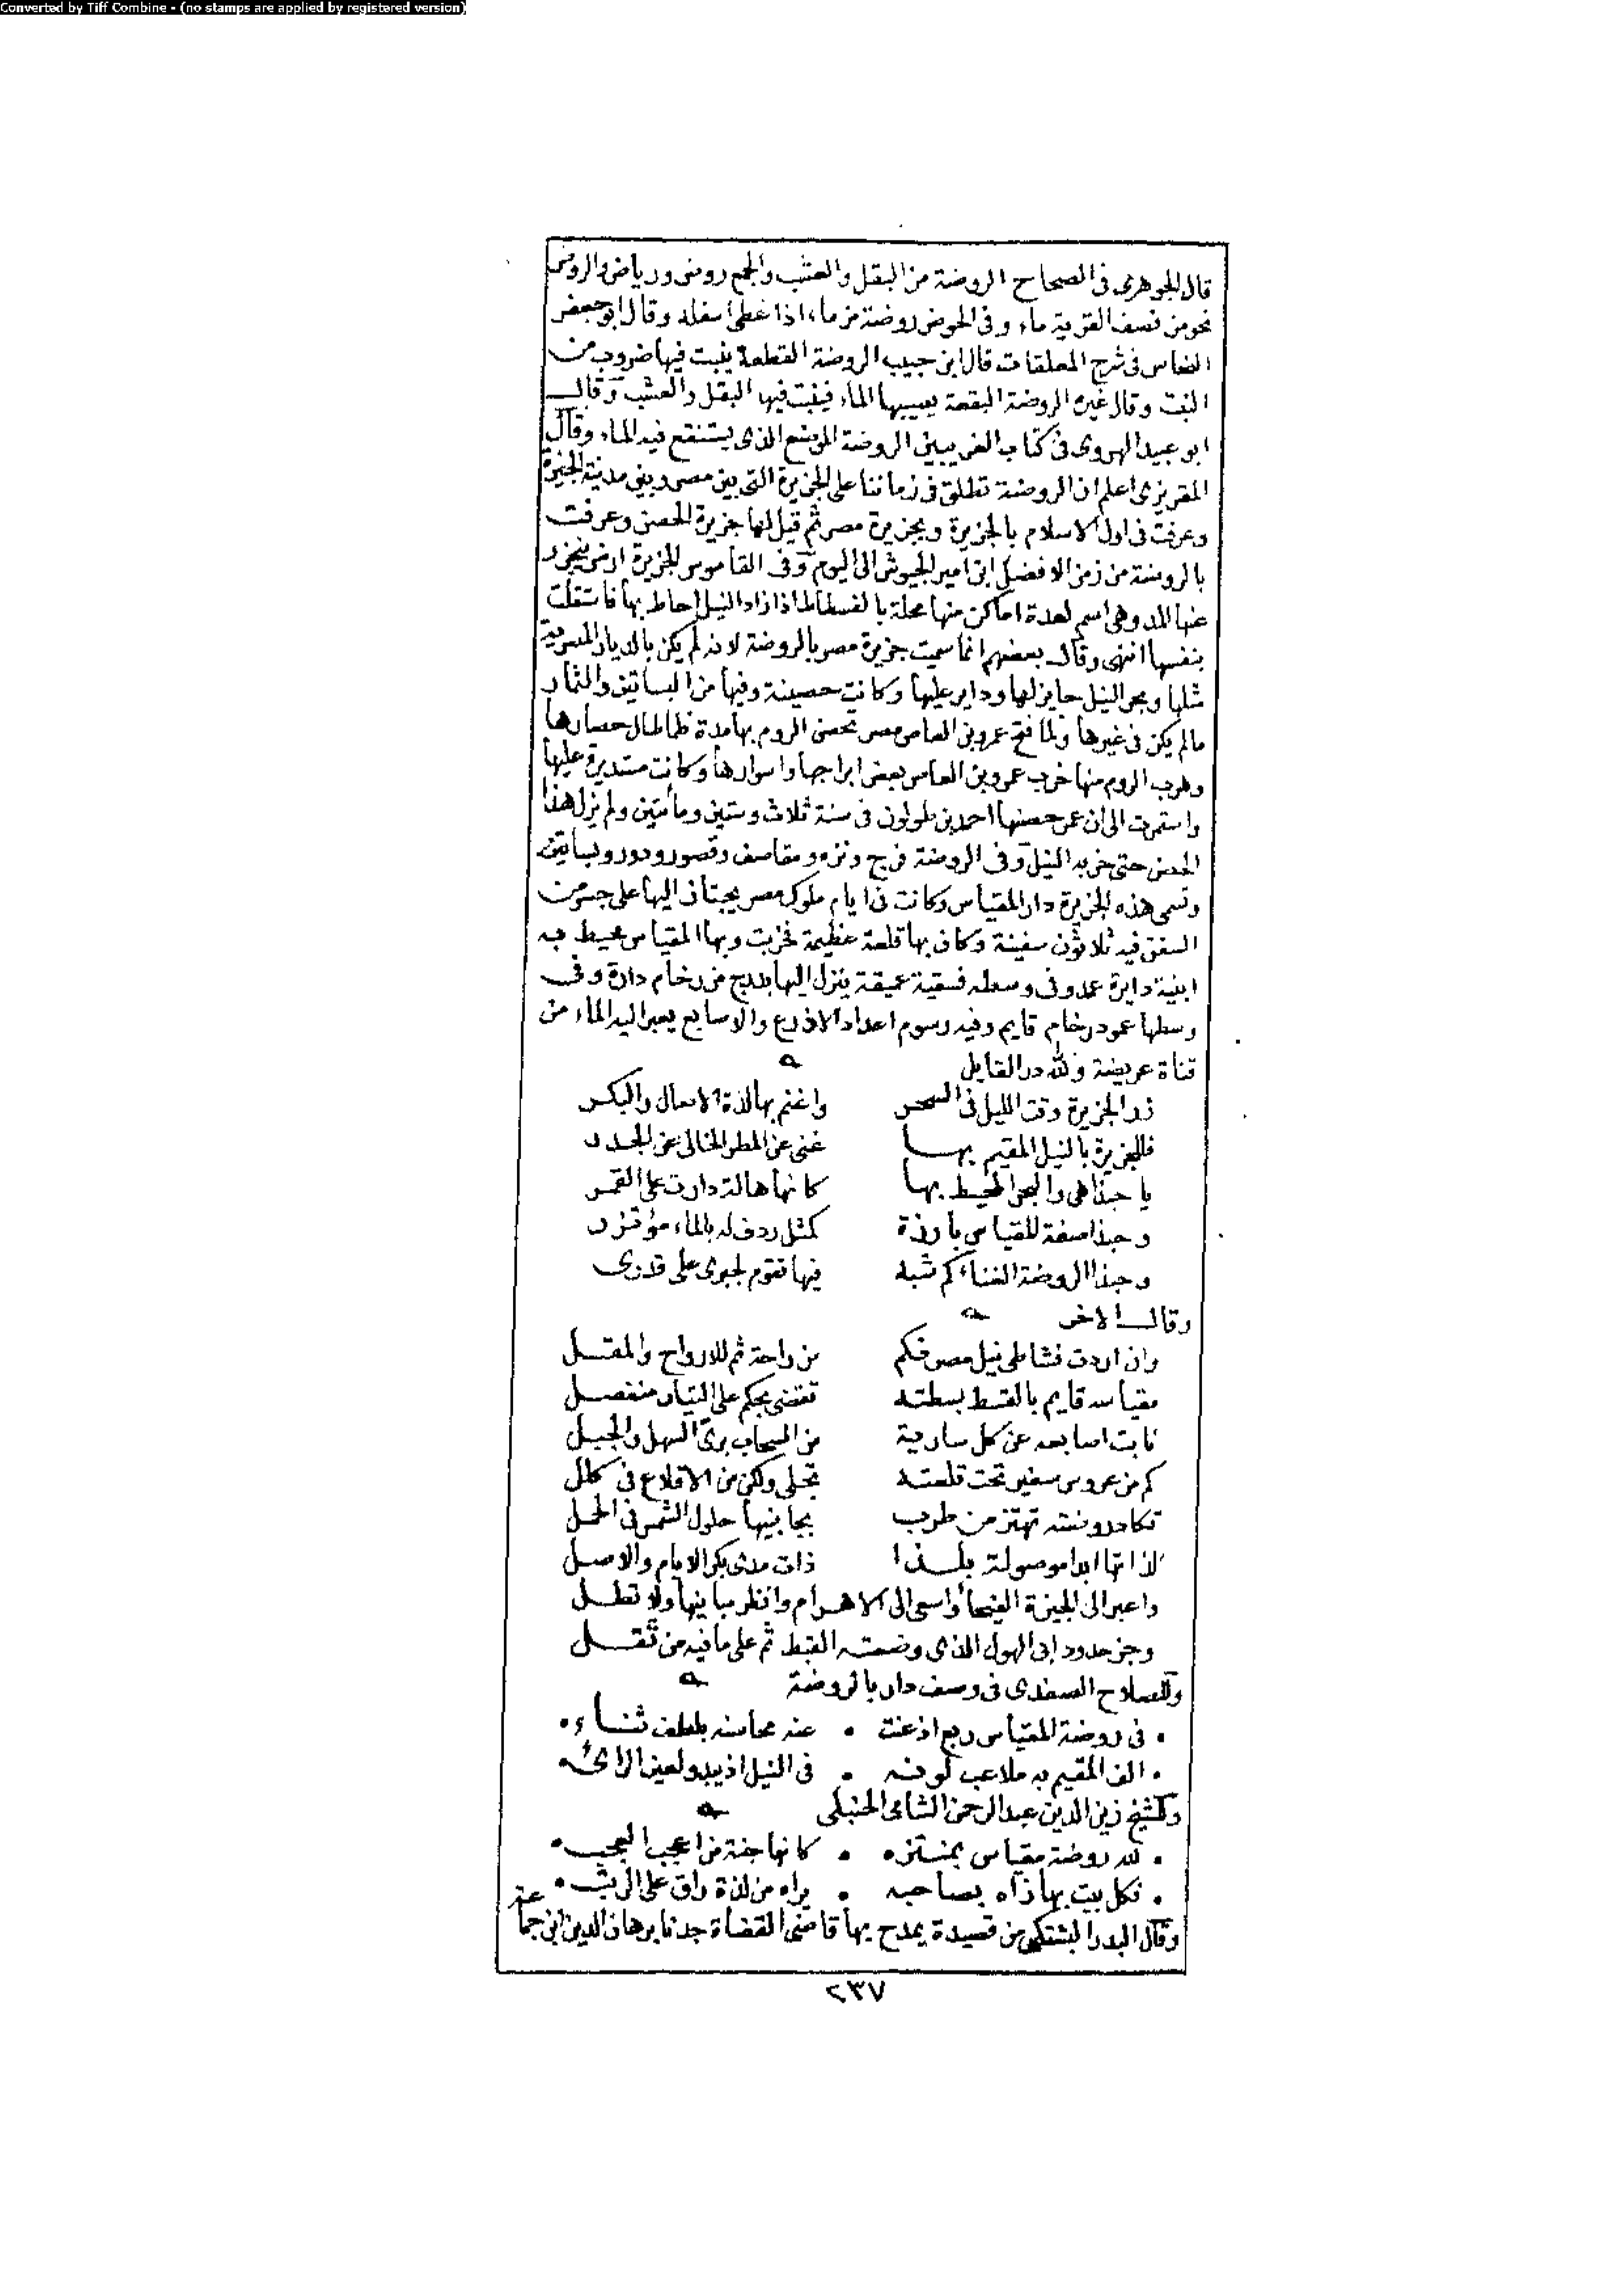 Converted by Tiff Combine - (no stamps are applied by registered version)
قال الجوهرى فى الصحاح الروضة من البقل والعشب والجمع روض ورياض والروض
نحو من نصف القربة ماء وفى الحوض روضة من ماء اذا غطى اسفله وقال ابو جعفر
النحاس فى شرح المعلقات قال ابن حبيب الروضة القطعة ينبت فيها ضروب من
النبت وقال غيره الروضة البقعة يصيبها الماء فينبت فيها البقل والعشب وقال
ابو عبيد الهروى فى كتاب الغريبين الروضة الموضع الذى يستنقع فيه الماء وقال
المقريزى اعلم ان الروضة تطلق فى زماننا على الجزيرة التى بين مصر وبين مدينة الجيزة
وعرفت فى اول الاسلام بالجزيرة وبجزيرة مصر ثم قيل لها جزيرة الحصن وعرفت
بالروضة من زمن الافضل ابن امير الجيوش الى اليوم وفى القاموس الجزيرة ارض ينجزر
عنها المد وهى اسم لعدة اماكن منها محلة بالفسطاط اذا زاد النيل احاط بها فاستقلت
بنفسها انتهى وقال بعضهم انما سميت جزيرة مصر بالروضة لانه لم يكن بالديار المصرية
مثلها وبحر النيل حايز لها وداير عليها وكانت حصينة وفيها من البساتين والثمار
مالم يكن فى غيرها ولما فتح عمرو بن العاص مصر تحصن الروم بها مدة فلما طال حصارها
وهرب الروم منها خرب عمرو بن العاص بعض ابراجها واسوارها وكانت مستديرة عليها
واستمرت الى ان عمر حصنها احمد بن طولون فى سنة ثلاث وستين ومائتين ولم يزل هذا
الحصن حتى خربه النيل وفى الروضة فرج ونزه ومقاصف وقصور ودور وبساتين
وتسمى هذه الجزيرة دار المقياس وكانت فى ايام ملوك مصر يجتاز اليها على جسر من
السفن فيه ثلاثون سفينة وكان بها قلعة عظيمة فخربت وبها المقياس محيط به
ابنية دايرة عمد وفى وسطه فسقية عميقة ينزل اليها بدرج من رخام دارة وفى
وسطها عمود رخام قايم وفيه رسوم اعداد الاذرع والاصابع يعبر اليه الماء من
قناة عريضة ولله در القايل
زر الجزيرة وقت الليل فى السحر واغنم بها لذة الاصال والبكر
فللجزيرة بالنيل المقيم بها غنى عن المطر الخالى عن الجدر
يا حبذا هى والبحر المحيط بها كانها هالة دارت على القمر
وحبذا صفة للقياس بارزة كمثل ردف له بالماء مؤتزر
وحبذا الروضة الغناء كم شبه فيها تقوم لجوى على قدرى
وقال الاخر
وان اردت فشاطى نيل مصر فكم من راحة ثم للارواح والمقل
مقياسه قايم بالقسط بسطته تقضى بحكم على التيار منفصل
نابت اصابعه عن كل سارية من السحاب برىّ السهل والجبل
كم من عروس سفين تحت قلعته تجلى ولكن من الاقلاع فى كلل
تكاد روضته تهتز من طرب بجانبيها حلول الشمس فى الحمل
لذاتها ابدا موصولة بلذا ذات مدى بكر الايام والاصل
واعبر الى الجيزة الفيحا واسعى الى الاهرام وانظر مبانيها ولا تطل
وجز حدود ابى الهول الذى وضعته القبط ثم على ما فيه من ثقل
وللصلاح الصفدى فى وصف دار بالروضة
• فى روضة المقياس ربع اذ عنت • عنه محاسنه بلطف ثناء •
• الف المقيم به ملاعب لونه • فى النيل اذ يبدو لعين الرائ •
وللشيخ زين الدين عبد الرحمن الشامى الحنبلى
• لله روضة مقياس بمنتزه • كانها جنة من اعجب العجب •
• فكل بيت بها زاه بصاحبه • يراه من لذة راق على الرتب •
وقال البدر البشتكى من قصيدة يمدح بها قاضى القضاة جدنا برهان الدين ابن جماعة
٢٣٧